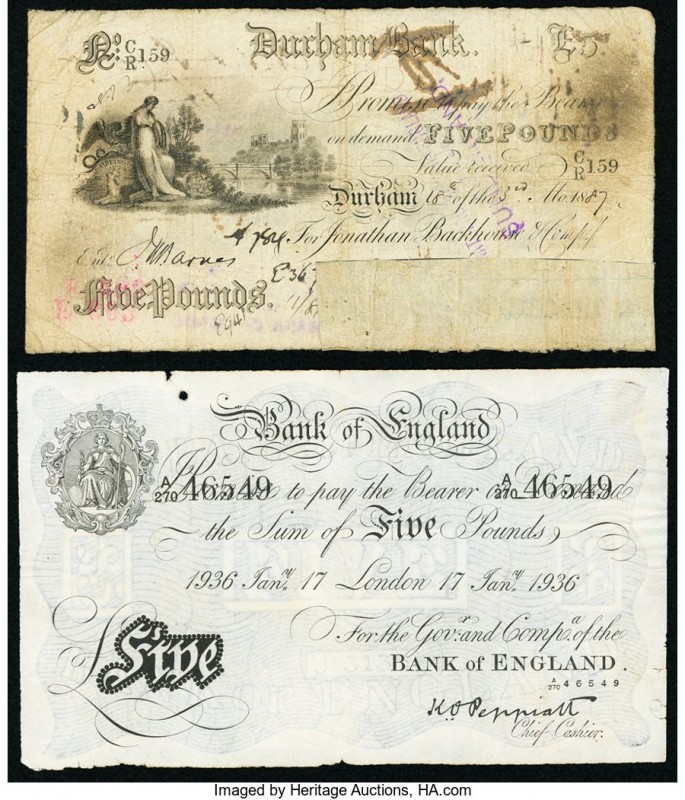 No. C/R 159 Durham Bank. £5
I Promise to pay the Bearer
on demand FIVE POUNDS
Value received C/R 159
Durham 18 of the 3rd Mo. 1887
For Jonathan Backhouse & Comp.
Ent.
Five Pounds.
Bank of England
A/270 46549 A/270 46549
I Promise to pay the Bearer on Demand
the Sum of Five Pounds
1936 Jany. 17 London 17 Jany. 1936
For the Govr. and Compa. of the
BANK of ENGLAND.
A/270 46549
Five
K O Peppiatt
Chief Cashier.
Imaged by Heritage Auctions, HA.com